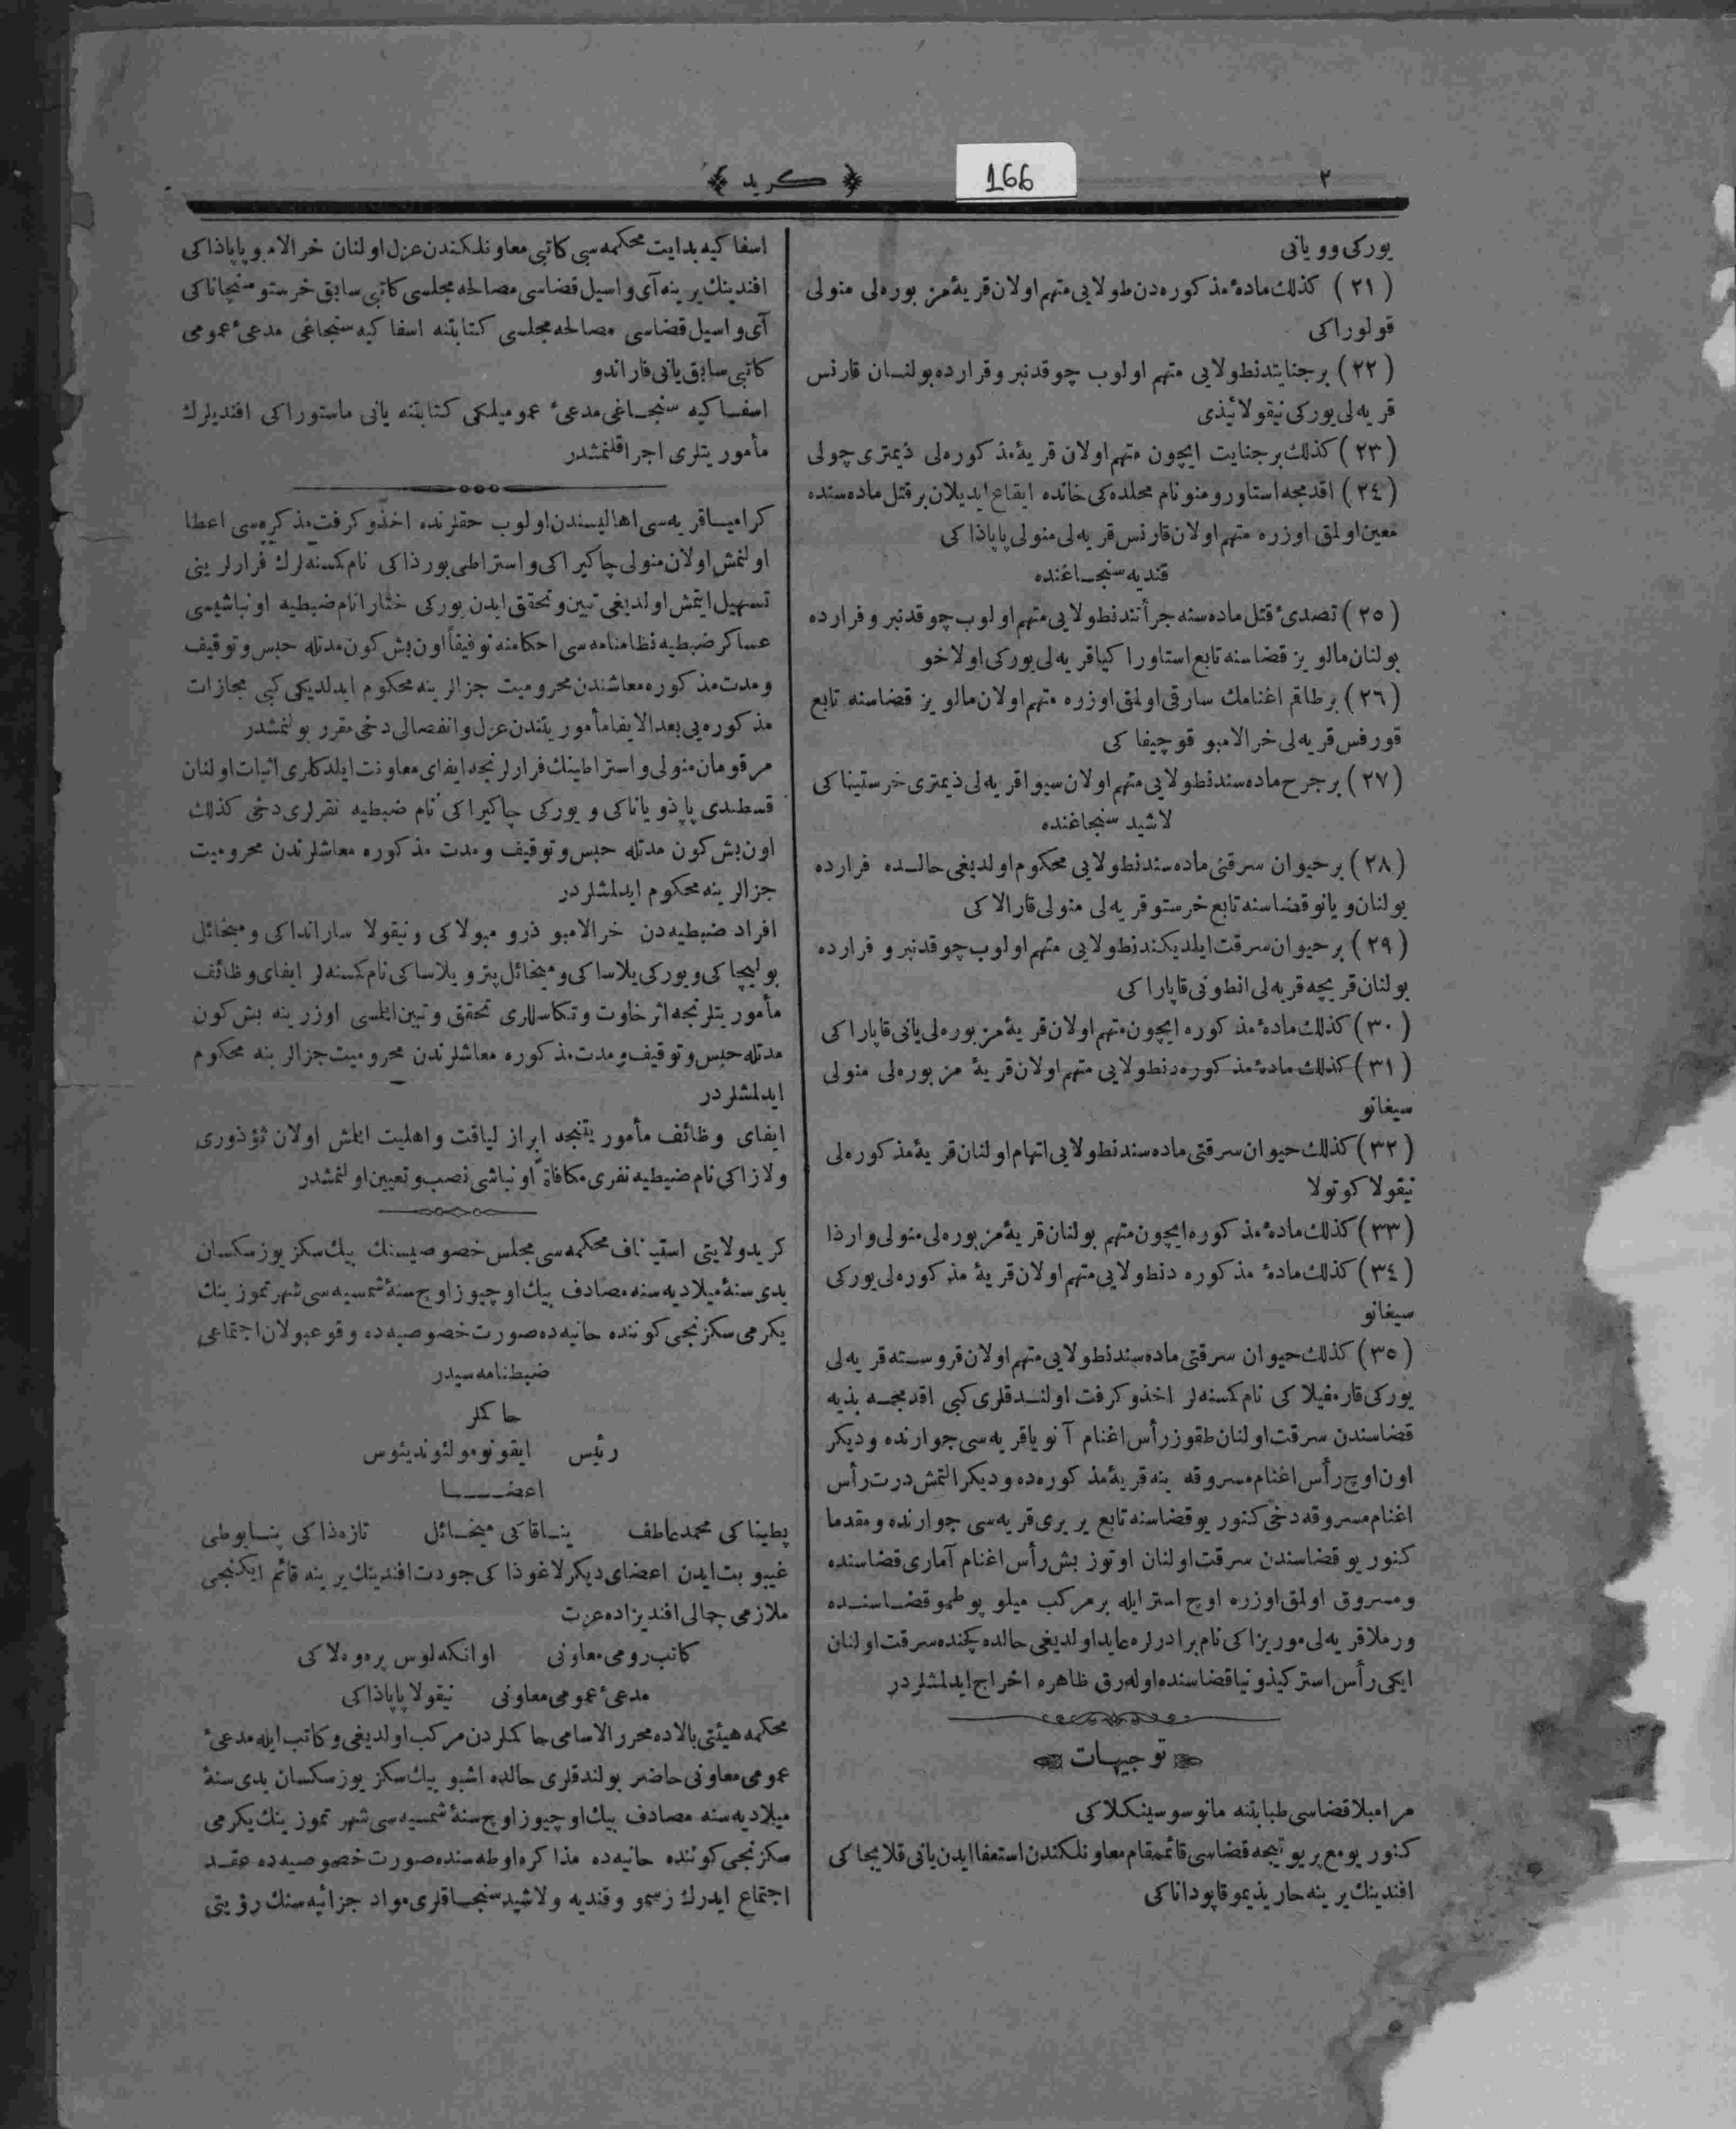 ٢
166
﴿ كريد ﴾
يوركى وويانى
(٢١) كذلك مادهٔ مذكوره‌دن طولايى متهم اولان قريهٔ مزبوره‌لى منولى
قولوراكى
(٢٢) برجنايتدنطولايى متهم اولوب چوقدنبرو قرارده بولنان قارنس
قريه‌لى يوركى نيقولائيذى
(٢٣) كذلك برجنايت ايچون متهم اولان قريهٔ مذكوره‌لى ذيمترى چولى
(٢٤) اقدمجه استاورومنو نام محلده‌كى خانده ايقاع ايديلان برقتل ماده‌سنده
معين اولمق اوزره متهم اولان قارنس قريه‌لى منولى پاپاذاكى
قنديه سنجاغنده
(٢٥) تصدئ قتل ماده‌سنه جرأتندنطولايى متهم اولوب چوقدنبرو فرارده
بولنان مالويز قضاسنه تابع استاوراكيا قريه‌لى يوركى اولاخو
(٢٦) برطاقم اغنامك سارقى اولمق اوزره متهم اولان مالويز قضاسنه تابع
قورفس قريه‌لى خرالامبو قوچيفاكى
(٢٧) برجرح ماده‌سندنطولايى متهم اولان سيوا قريه‌لى ذيمترى خرستيناكى
لاشيد سنجاغنده
(٢٨) برحيوان سرقتى ماده‌سندنطولايى محكوم اولديغى حالده فرارده
بولنان ويانو قضاسنه تابع خرستو قريه‌لى منولى قارالاكى
(٢٩) برحيوان سرقت ايلديكندنطولايى متهم اولوب چوقدنبرو فرارده
بولنان قريچه قريه‌لى انطونى قاپاراكى
(٣٠) كذلك مادهٔ مذكوره ايچون متهم اولان قريهٔ مزبوره‌لى يانى قاپاراكى
(٣١) كذلك مادهٔ مذكوره‌دنطولايى متهم اولان قريهٔ مزبوره‌لى منولى
سيغانو
(٣٢) كذلك حيوان سرقتى ماده‌سندنطولايى اتهام اولنان قريهٔ مذكوره‌لى
نيقولا كوتولا
(٣٣) كذلك مادهٔ مذكوره ايچون متهم بولنان قريهٔ مزبوره‌لى منولى وارذا
(٣٤) كذلك مادهٔ مذكوره دنطولايى متهم اولان قريهٔ مذكوره‌لى يوركى
سيغانو
(٣٥) كذلك حيوان سرقتى ماده‌سندنطولايى متهم اولان قروسته قريه‌لى
يوركى قارمفيلاكى نام كسنه‌لر اخذوكرفت اولندقلرى كبى اقدمجه پذيه
قضاسندن سرقت اولنان طقوز رأس اغنام آنويا قريه‌سى جوارنده وديكر
اون اوچ رأس اغنام مسروقه ينه قريهٔ مذكوره‌ده وديكر التمش درت رأس
اغنام مسروقه دخى كنوريو قضاسنه تابع پريرى قريه‌سى جوارنده ومقدما
كنوريو قضاسندن سرقت اولنان اوتوز بش رأس اغنام آمارى قضاسنده
ومسروق اولمق اوزره اوچ استر ايله برمركب ميلوپوطمو قضاسنده
ورملا قريه‌لى موريزاكى نام برادرلره عايد اولديغى حالده كچنده سرقت اولنان
ايكى رأس استر كيذونيا قضاسنده اوله‌رق ظاهره اخراج ايدلمشلردر
توجيهات
مرامبلا قضاسى طبابتنه مانوسوسينكلاكى
كنوريو مع پريوتيجه قضاسى قائممقام معاونلكندن استعفا ايدن يانى قلايجاكى
افندينك يرينه حاريذيمو قاپوداناكى
اسفاكيه بدايت محكمه‌سى كاتبى معاونلكندن عزل اولنان خرالامبو پاپاذاكى
افندينك يرينه آى واسيل قضاسى مصالحه مجلسى كاتبى سابق خرستو منچاناكى
آى واسيل قضاسى مصالحه مجلسى كتابتنه اسفاكيه سنجاغى مدعئ عمومى
كاتبى سابق يانى قاراندو
اسفاكيه سنجاغى مدعئ عموميلكى كتابتنه يانى ماستوراكى افنديلرك
مأموريتلرى اجرا قلنمشدر
كراميا قريه‌سى اهاليسندن اولوب حقلرنده اخذوكرفت مذكره‌سى اعطا
اولنمش اولان منولى چاكيراكى واستراطى بورذاكى نام كسنه‌لرك فرارلرينى
تسهيل ايتمش اولديغى تبين وتحقق ايدن يوركى ختارا نام ضبطيه اونباشيسى
عساكر ضبطيه نظامنامه‌سى احكامنه توفيقاً اون بش كون مدتله حبس وتوقيف
ومدت مذكوره معاشندن محروميت جزالرينه محكوم ايدلديكى كبى مجازات
مذكوره‌يى بعدالايفا مأموريتندن عزل وانفصالى دخى مقرر بولنمشدر
مرقومان منولى واستراطينك فرارلرنجه ايفاى معاونت ايلدكلرى اثبات اولنان
قسطندى پاپذوياناكى و يوركى چاكيراكى نام ضبطيه نفرلرى دخى كذلك
اون بش كون مدتله حبس وتوقيف ومدت مذكوره معاشلرندن محروميت
جزالرينه محكوم ايدلمشلردر
افراد ضبطيه‌دن خرالامبو ذرومبولاكى ونيقولا سارانداكى وميخائل
بوليچاكى ويوركى پلاساكى وميخائل پترو پلاساكى نام كسنه‌لر ايفاى وظائف
مأموريتلرنجه اثر خاوت وتكاسللارى تحقق وتبين ايتلمسى اوزرينه بش كون
مدتله حبس وتوقيف ومدت مذكوره معاشلرندن محروميت جزالرينه محكوم
ايدلمشلردر
ايفاى وظائف مأموريتنجه ابراز لياقت واهليت ايتمش اولان ثؤذورى
ولازاكى نام ضبطيه نفرى مكافاةً اونباشى نصب وتعيين اولنمشدر
كريد ولايتى استيناف محكمه‌سى مجلس خصوصيسنك بيك سكز يوز سكسان
يدى سنهٔ ميلاديه سنه مصادف بيك اوچيوز اوچ سنهٔ شمسيه‌سى شهر تموزينك
يكرمى سكزنجى كوننده حانيه‌ده صورت خصوصيه‌ده وقوعبولان اجتماعى
ضبطنامه‌سيدر
حاكملر
رئيس ايقونومو لئونديئوس
اعضا
پطيناكى محمد عاطف پناقاكى ميخائل تازه‌ذاكى پنايوطى
غيبوبت ايدن اعضاى ديكر لاغوذاكى جودت افندينك يرينه قائم ايكنجى
ملازمى جمالى افنديزاده عزت
كاتب رومى معاونى اوانكه‌لوس پره‌وه‌لاكى
مدعئ عمومى معاونى نيقولا پاپاذاكى
محكمه هيئتى بالاده محررالاسامى حاكملردن مركب اولديغى وكاتب ايله مدعئ
عمومى معاونى حاضر بولندقلرى حالده اشبو بيك سكز يوز سكسان يدى سنهٔ
ميلاديه سنه مصادف بيك اوچيوز اوچ سنهٔ شمسيه‌سى شهر تموزينك يكرمى
سكزنجى كوننده حانيه‌ده مذاكره اوطه‌سنده صورت خصوصيه‌ده عقد
اجتماع ايدرك رسمو وقنديه ولاشيد سنجاقلرى مواد جزائيه‌سنك رؤيتى